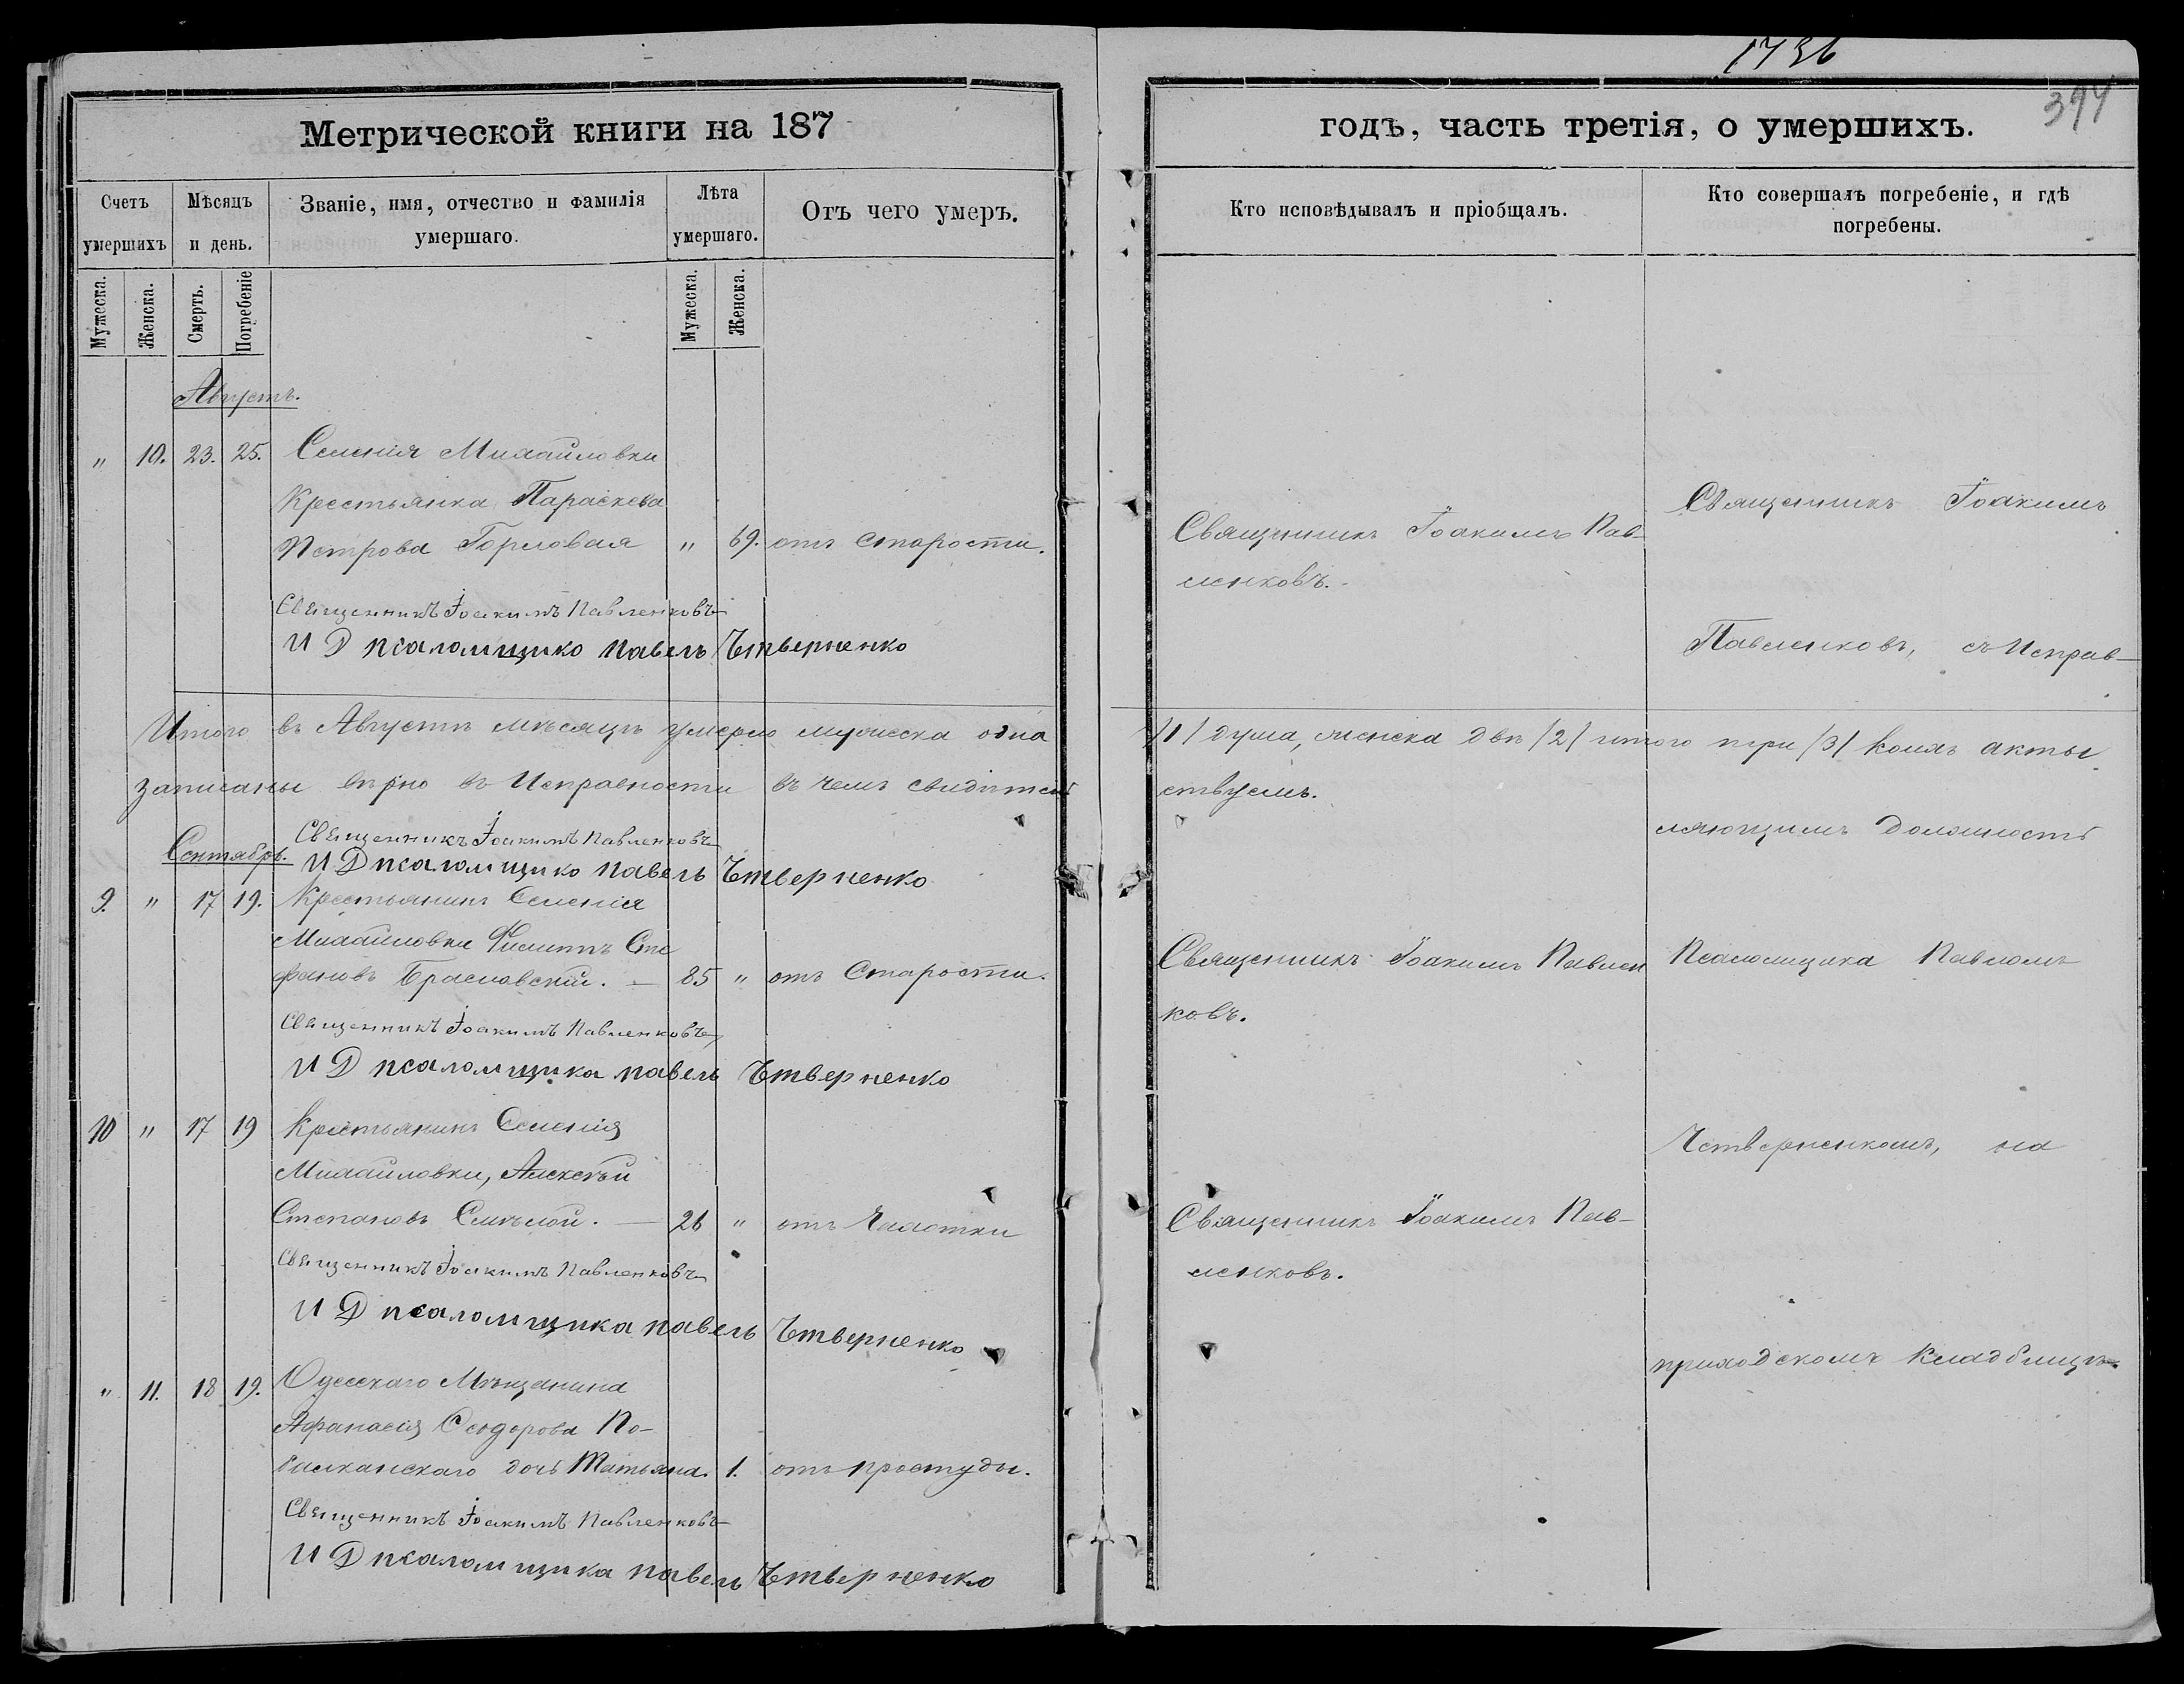 1736
394
Метрической книги на 187
годъ, часть третія, о умершихъ.
Счетъ умершихъ
Мѣсяцъ и день.
Званіе, имя, отчество и фамилія умершаго.
Лѣта умершаго.
Отъ чего умеръ.
Кто исповѣдывалъ и пріобщалъ.
Кто совершалъ погребеніе, и гдѣ погребены.
Мужеска.
Женска.
Смерть.
Погребеніе
Мужеска.
Женска.
Августъ.
" 10. 23. 25. Селенія Михайловки
Крестьянка Параскева
Петрова Горловая " 69. отъ Старости.
Священникъ Іоакимъ Пав-
ленковъ.
Священникъ Іоакимъ Павленковъ
И Д псаломщико павелъ Чтверненко
Итого въ Августѣ мѣсяцѣ умерло мужеска одна /1/ душа, женска двѣ /2/ итого три /3/ коихъ акты
записаны вѣрно въ Исправности въ чемъ свидѣтель ствуемъ.
Священникъ Іоакимъ Павленковъ
И Д псаломщико павелъ Чтверненко
Сентябрь.
9. " 17 19. Крестьянинъ Селенія
Михайловки Филиппъ Сте
фановъ Браславскій. — 85 " отъ Старости.
Священникъ Іоакимъ Павлен
ковъ.
Священникъ Іоакимъ Павленковъ
И Д псаломщика павелъ Чтверненко
10 " 17 19 Крестьянинъ Селенія
Михайловки, Алексѣй
Степановъ — 26 " отъ Чахотки
Священникъ Іоакимъ Пав-
ленковъ.
Священникъ Іоакимъ Павленковъ
И Д псаломщика павелъ Чтверненко
" 11. 18 19. Одесскаго Мѣщанина
Афанасія Феодорова По-
дочь Татьяна. 1. отъ простуды.
Священникъ Іоакимъ Павленковъ
И Д псаломщика павелъ Чтверненко
Священникъ Іоакимъ
Павленковъ, съ Исправ-
ляющимъ должность
Псаломщика Павломъ
Четверненкомъ, на
приходскомъ Кладбищѣ